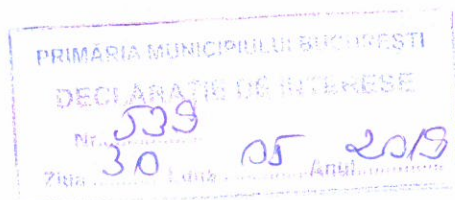 PRIMĂRIA MUNICIPIULUI BUCUREȘTI
DECLARAȚIE DE INTERESE
Nr. 539
Ziua 30 Luna 05 Anul 2019